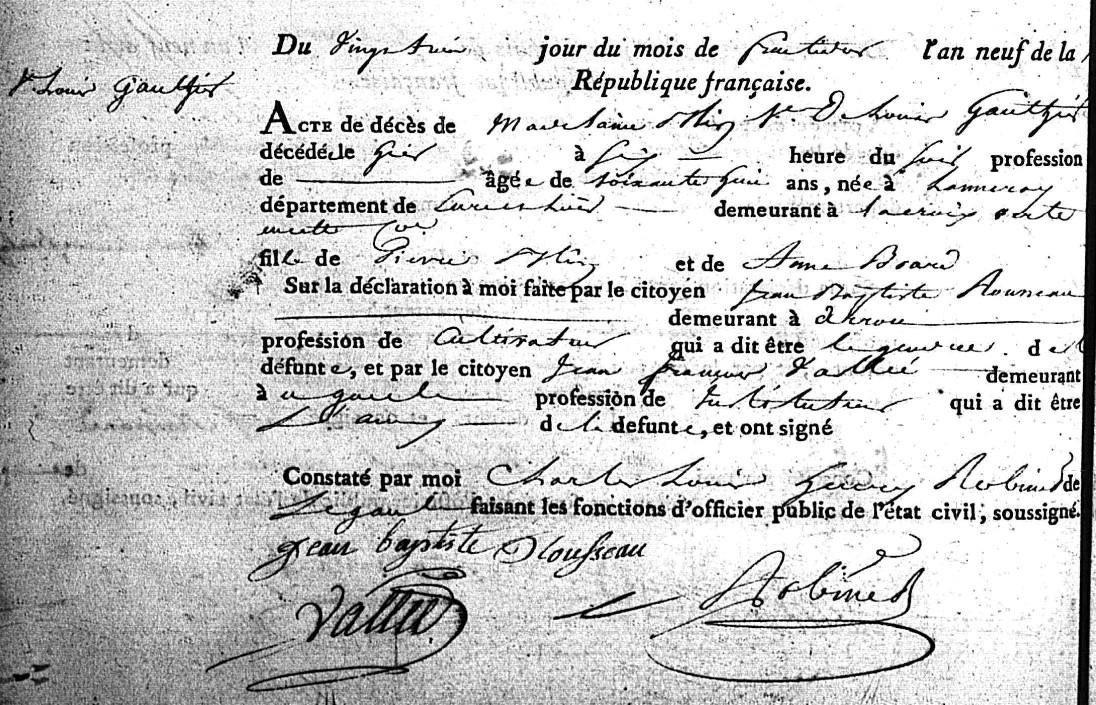 Du Vingt trois jour du mois de fructidor l'an neuf de la
République française.
Ve Louis Gaultier
ACTE de décès de Madelaine Ve De Louis Gaultier
décédée le hier à six heure du soir profession
de âgée de soixante ans, née à Lanneray
département de demeurant à la croix verte
fille de Pierre et de Anne
Sur la déclaration à moi faite par le citoyen Jean Baptiste Rousseau
demeurant à arrou
profession de Cultivateur qui a dit être le de
défunte, et par le citoyen Jean françois Vallée demeurant
à profession de Instituteur qui a dit être
L'amy de la defunte, et ont signé
Constaté par moi Charles Louis Robined de
Legault faisant les fonctions d'officier public de l'état civil, soussigné.
Jean baptiste Rousseau
Vallée
Robined